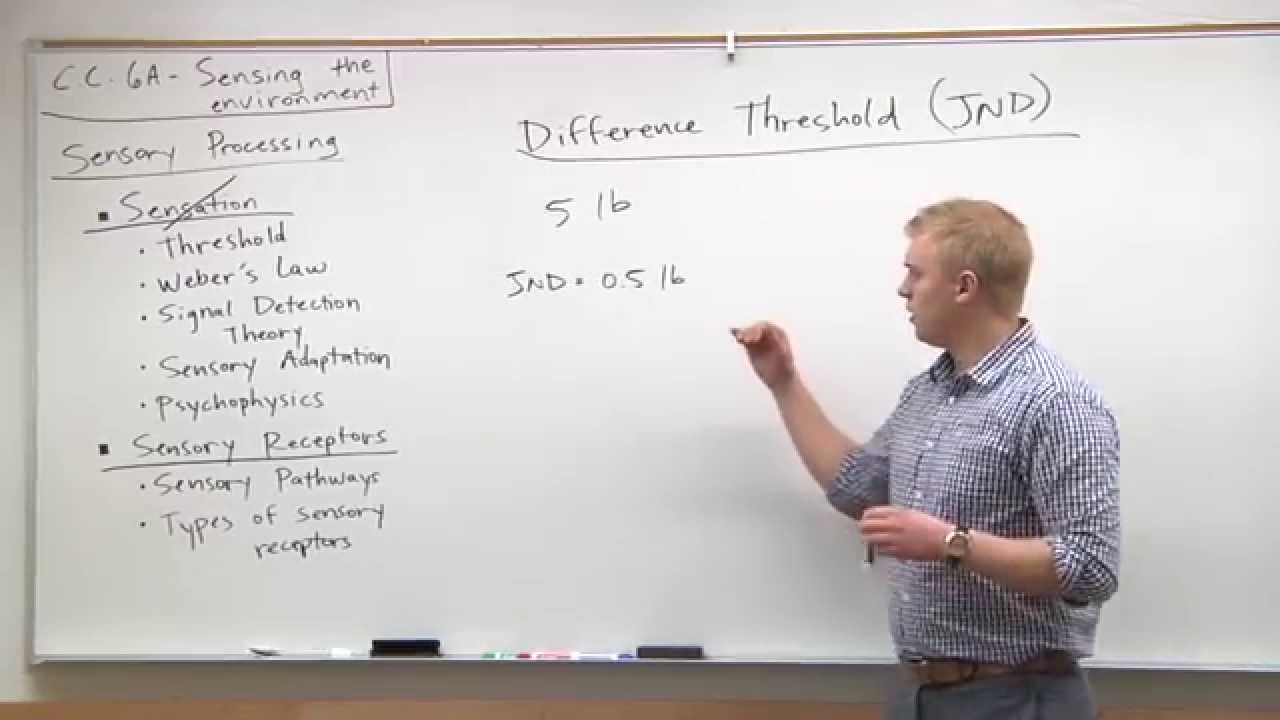 C.C. 6A - Sensing the
environment
Sensory Processing
▪ Sensation
• Threshold
• Weber's Law
• Signal Detection
Theory
• Sensory Adaptation
• Psychophysics
▪ Sensory Receptors
• Sensory Pathways
• Types of sensory
receptors
Difference Threshold (JND)
5 lb
JND = 0.5 lb